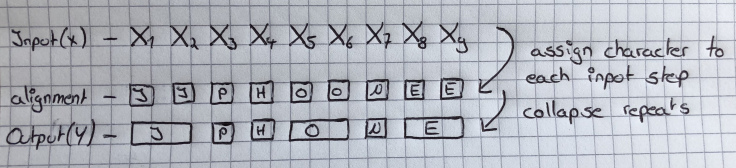 Input(x) - X1 X2 X3 X4 X5 X6 X7 X8 Xy
assign character to
each input step
alignment - J J P H O O N E E
collapse repeats
Output(Y) - J P H O N E